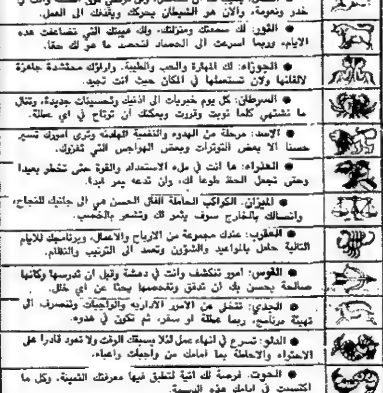 خدر ونعومة، والآن هو الشيطان يحركك ويقذفك الى العمل.
● الثور: لك سمعتك ومنزلتك، ولك هيبتك التي تضاعفت هذه
الايام، وربما اسرعت الى الحصاد لتحصد ما هو لك حقا.
● الجوزاء: لك المهارة والحب والطيبة. واراؤك محتشدة جاهزة
لالقائها ولان تستعملها في المكان حيث انت تجيد.
● السرطان: كل يوم خبريات الى اذنيك وتحسينات جديدة، وتنال
ما تشتهي كلما نويت وقررت ويمكنك أن ترتاح في اي عطلة.
● الاسد: مرحلة من الهدوء والنفسية الهادئة وترى أمورك تسير
حسنا الا بعض التوترات وبعض الهواجس التي تغزوك.
● العذراء: ها انت في ملء الاستعداد والقوة حتى تخطو بعيدا
وحتى تجعل الحظ طوعا لك، ولن تدعه يمر ابدا.
● الميزان: الكواكب الحاملة الفأل الحسن هي الى جانبك للنجاح،
واتصالك بالخارج سوف يثمر لك وتشعر بالخصب.
● العقرب: عندك مجموعة من الارباح والاعمال، وبرنامجك للايام
التالية حافل بالمواعيد والشؤون وتعمد الى الترتيب والنظام.
● القوس: امور تنكشف وانت في دهشة وقبل ان تدرسها وكأنها
صالحة يحسن بك أن تدقق وتفحصها بحثا عن اي خلل.
● الجدي: تتخلى عن الامور الادارية والواجبات وتنصرف الى
تهيئة برنامج، ربما عطلة او سفر، ثم تكون في هدوء.
● الدلو: تسرع في انهاء عمل لئلا يسبقك الوقت ولا تعود قادرا على
الاحتواء والاحاطة بما امامك من واجبات واعباء.
● الحوت. فرصة لك اتية لتطبق فيها معرفتك الثمينة، وكل ما
اكتسبت في ايامك هذه